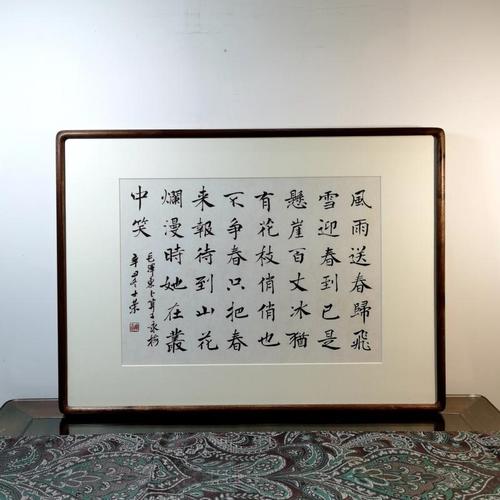 風雨送春歸飛
雪迎春到已是
懸崖百丈冰猶
有花枝俏俏也
不争春只把春
来報待到山花
爛漫時她在叢
中笑
毛澤東卜算子詠梅
辛丑冬士荣